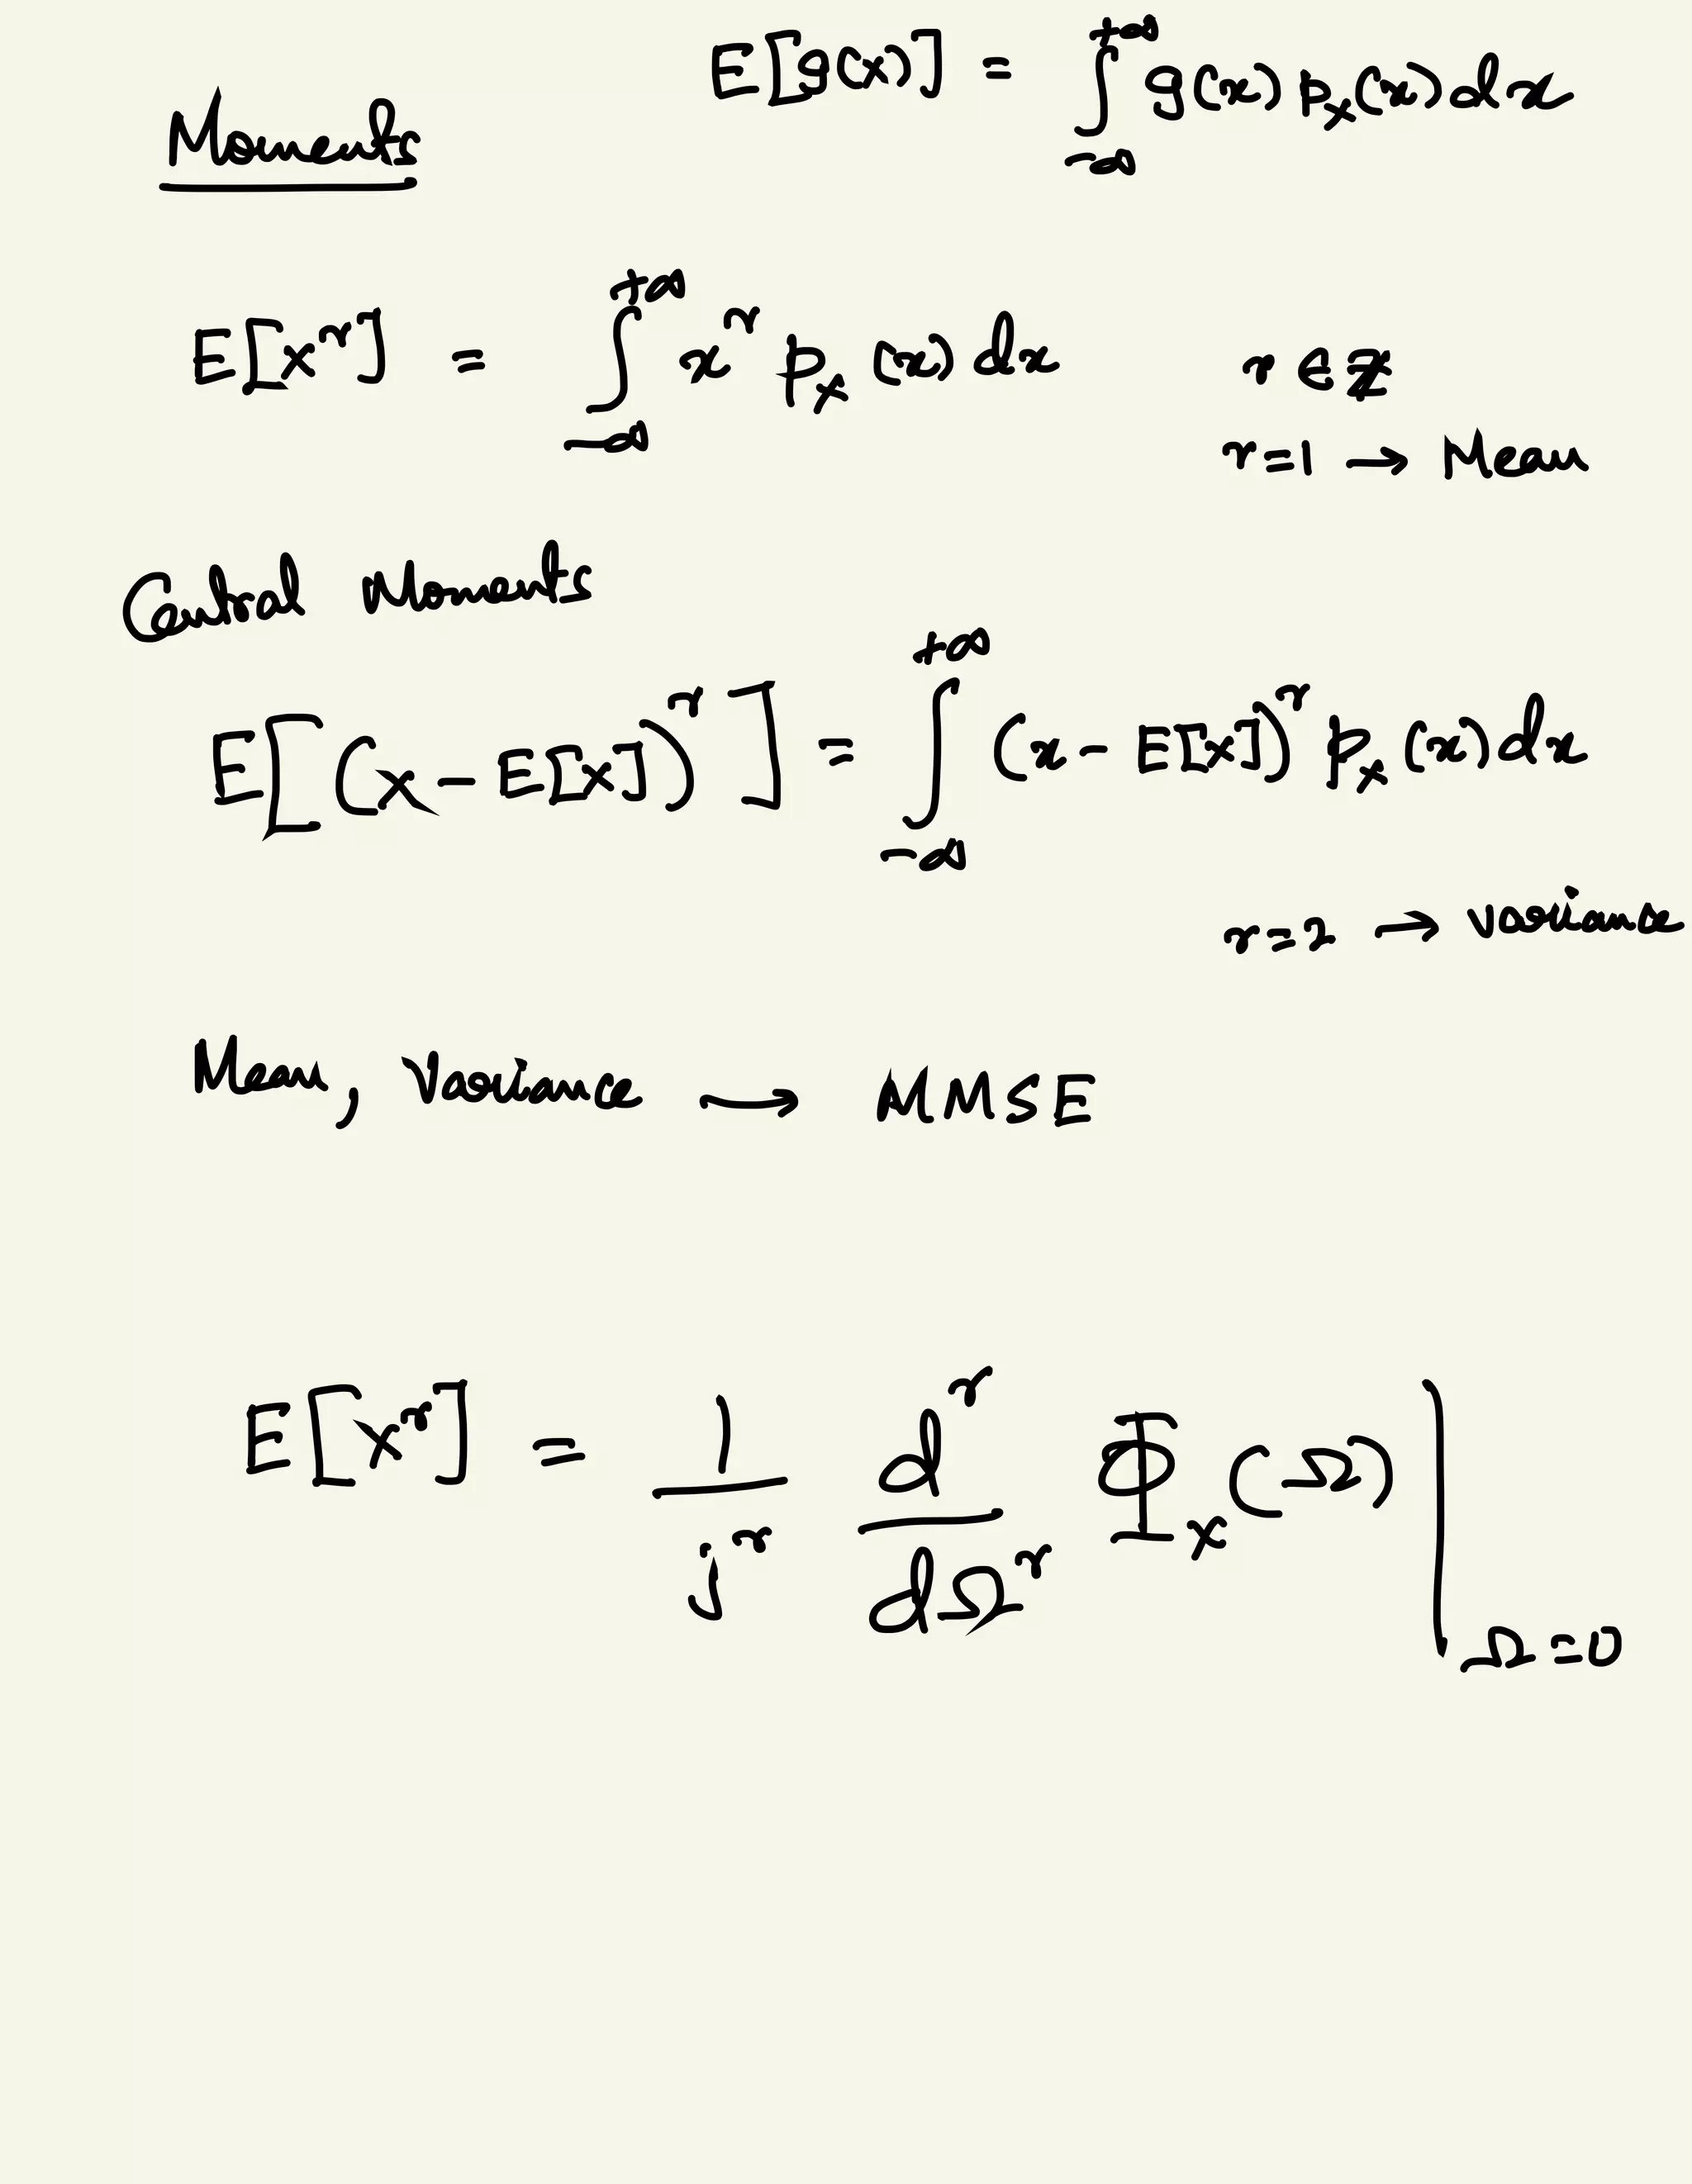 E[g(x)] = ∫_{-∞}^{+∞} g(x) p_X(x) dx
Moments
E[X^r] = ∫_{-∞}^{+∞} x^r p_X(x) dx   r ∈ ℤ
r=1 → Mean
Central Moments
E[(X - E[X])^r] = ∫_{-∞}^{+∞} (x - E[X])^r p_X(x) dx
r=2 → variance
Mean, Variance → MMSE
E[X^r] = \frac{1}{j^r} \frac{d^r}{dΩ^r} Φ_X(Ω) |_{Ω=0}